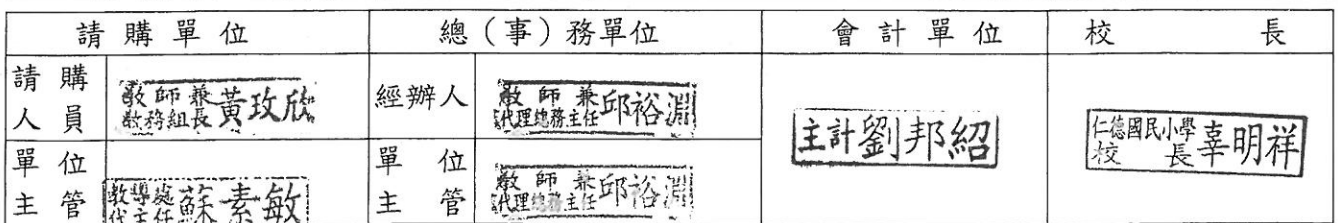 請購單位 總（事）務單位 會計單位 校長
請購人員 教師兼教務組長 黃玫欣 經辦人 教師兼代理總務主任 邱裕淵 主計 劉邦紹 仁德國民小學校長 辜明祥
單位主管 教導處代主任 蘇素敏 單位主管 教師兼代理總務主任 邱裕淵